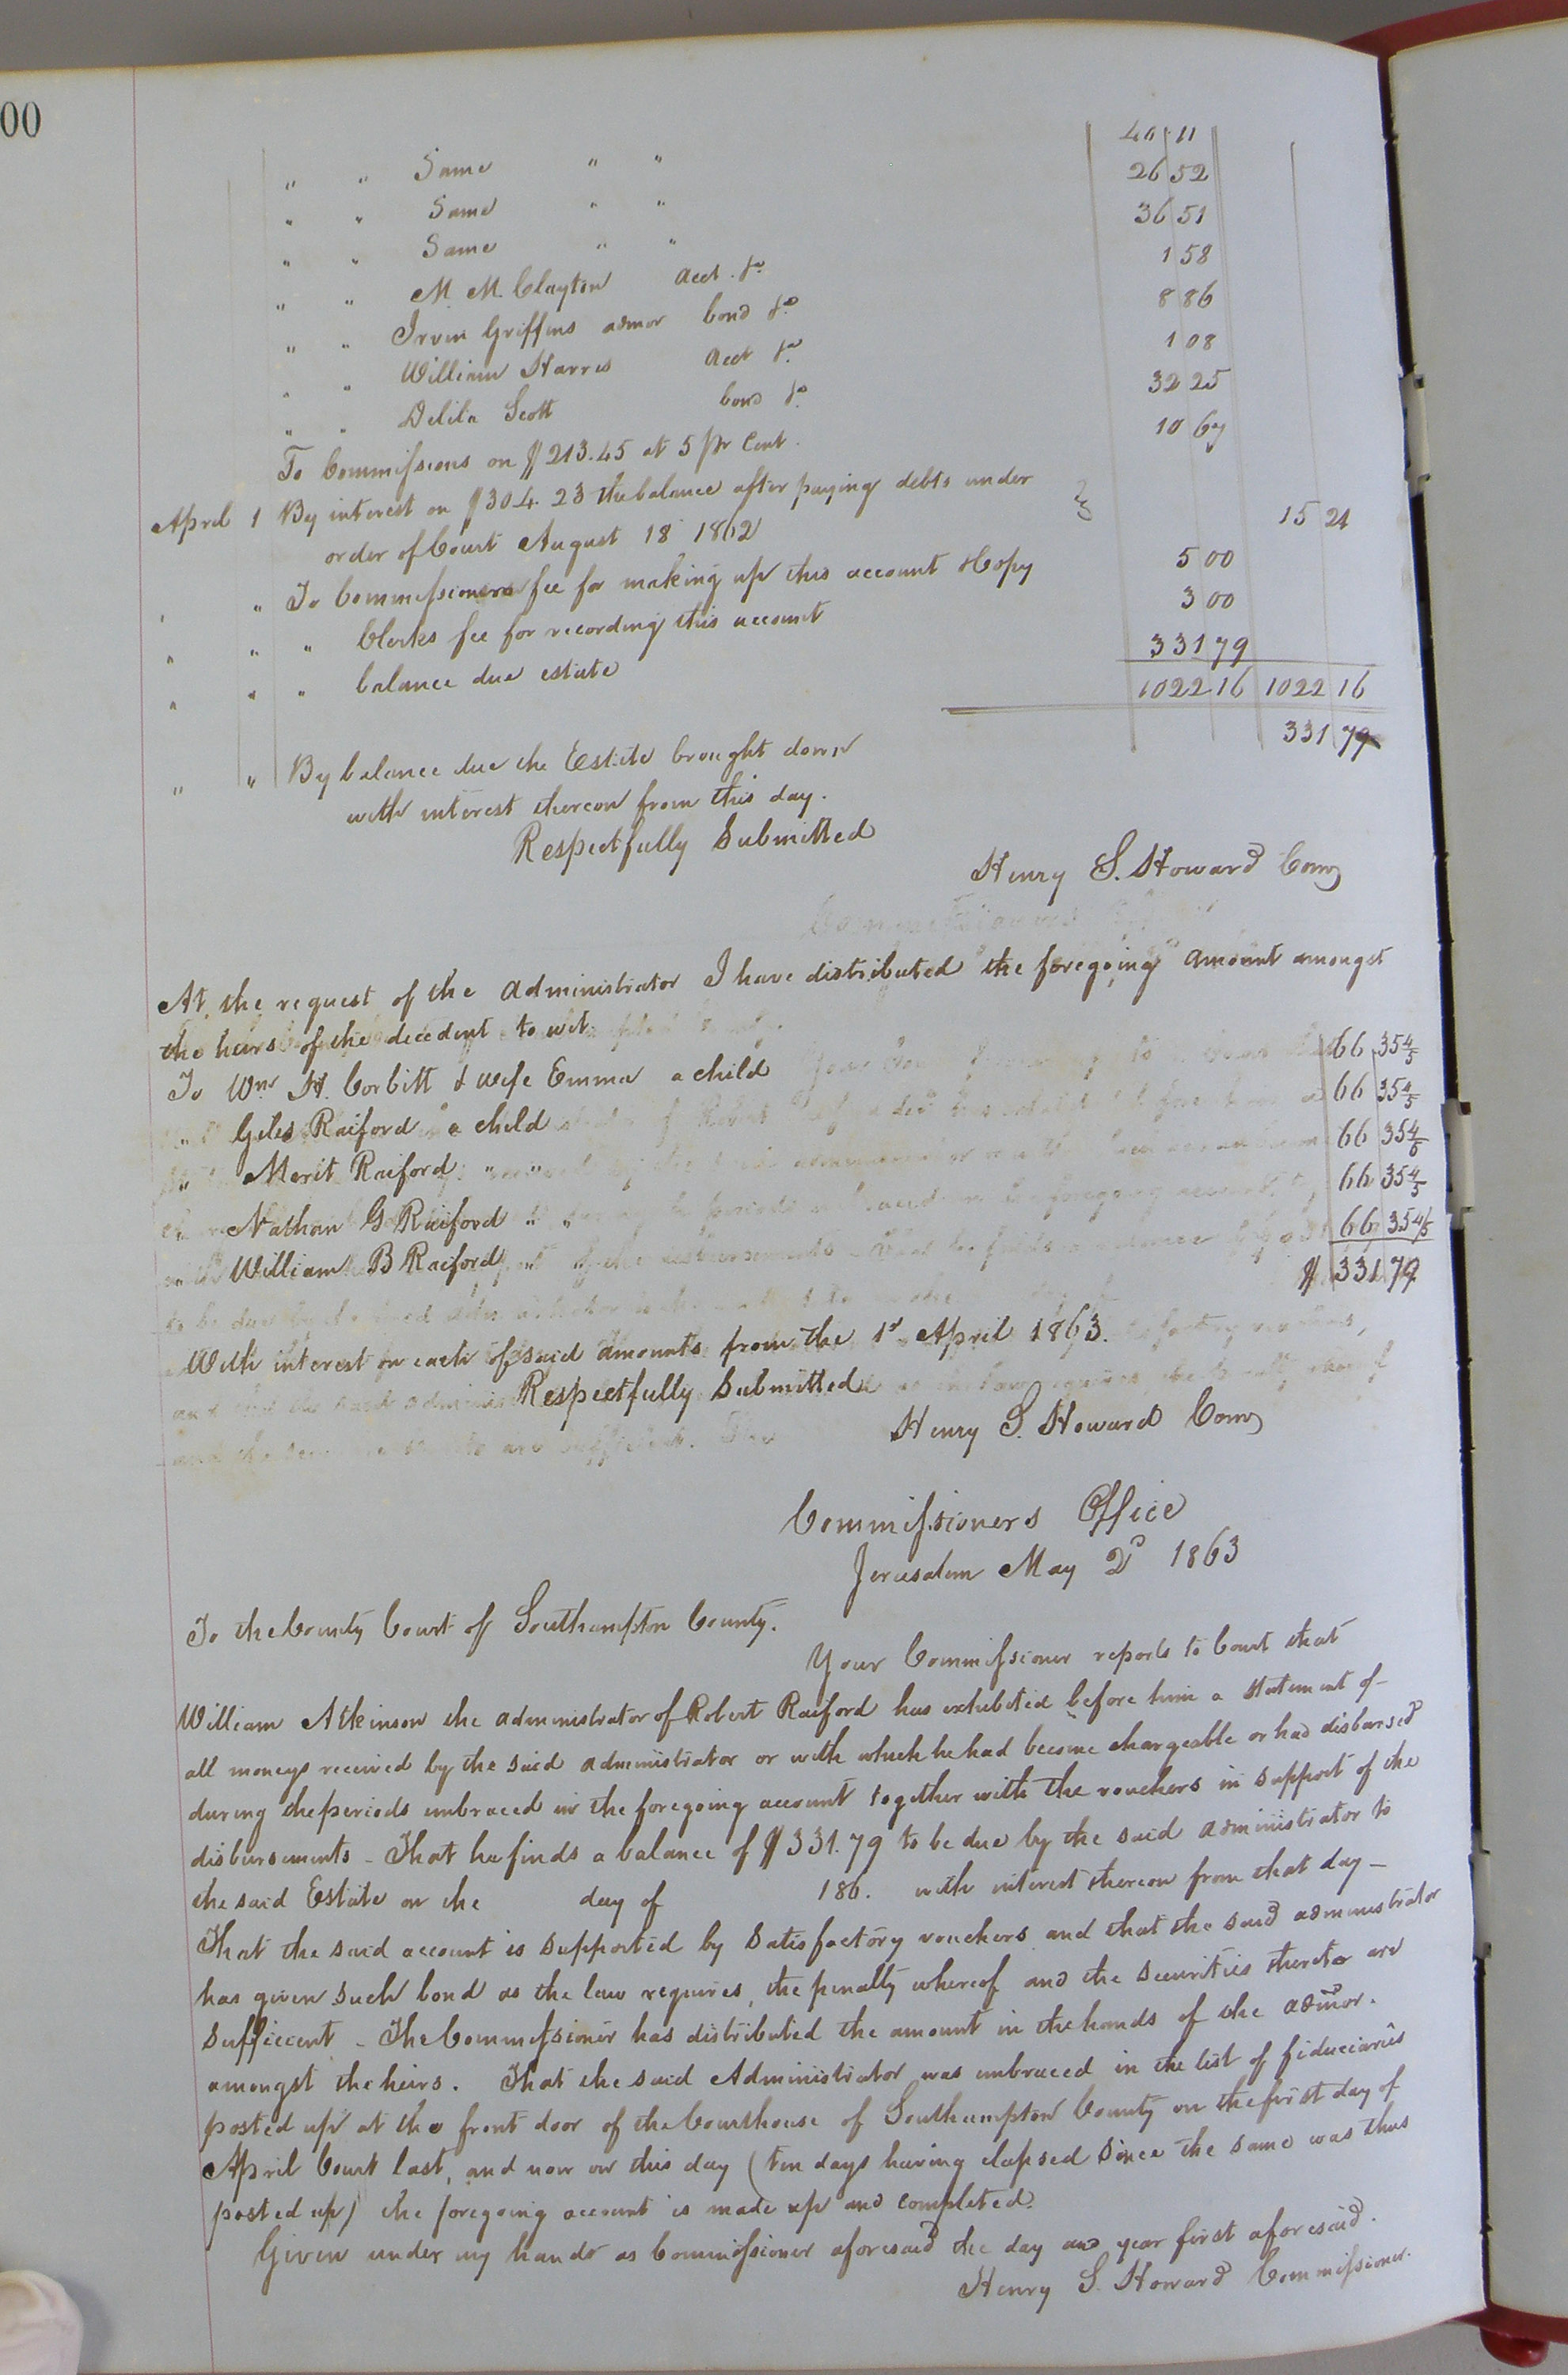 00
" " Same " " 40 11
" " Same " " 26 52
" " Same " " 36 51
" " M. M. Clayton acct. do 1 58
" " Irvin Griffins admor bond do 8 86
" " William Harris acct do 1 08
" " Delila Scott bond do 32 25
To Commissions on $213.45 at 5 pr Cent. 10 67
April 1 By interest on $304.23 the balance after paying debts under
order of Court August 18 1862 15 21
" " To Commissioners fee for making up this account & Copy 5 00
" " " Clerks fee for recording this account 3 00
" " " balance due estate 331 79
1022 16 1022 16
" " By balance due the Estate brought down 331 79
with interest thereon from this day.
Respectfully Submitted
Henry S. Howard Comr
At the request of the administrator I have distributed the foregoing amount amongst
the heirs of the decedent to wit
To Wm H. Corbitt & wife Emma a child 66 35 4/5
" Giles Raiford a child 66 35 4/5
" Merit Raiford " " 66 35 4/5
" Nathan G Raiford " " 66 35 4/5
" William B Raiford " 66 35 4/5
$ 331 79
With interest on each of said amounts from the 1st April 1863.
Respectfully Submitted
Henry S. Howard Comr
Commissioners Office
Jerusalem May 2d 1863
To the County Court of Southampton County.
Your Commissioner reports to Court that
William Atkinson the administrator of Robert Raiford has exhibited before him a statement of
all moneys received by the said administrator or with which he had become chargeable or had disbursed
during the periods embraced in the foregoing account together with the vouchers in support of the
disbursements - That he finds a balance of $331.79 to be due by the said administrator to
the said Estate on the day of 186. with interest thereon from that day -
That the said account is supported by satisfactory vouchers and that the said administrator
has given such bond as the law requires, the penalty whereof and the securities thereto are
sufficient - The Commissioner has distributed the amount in the hands of the admor.
amongst the heirs. That the said Administrator was embraced in the list of fiduciaries
posted up at the front door of the Courthouse of Southampton County on the first day of
April Court last, and now on this day (ten days having elapsed since the same was thus
posted up) the foregoing account is made up and completed.
Given under my hand as Commissioner aforesaid the day and year first aforesaid.
Henry S. Howard Commissioner.